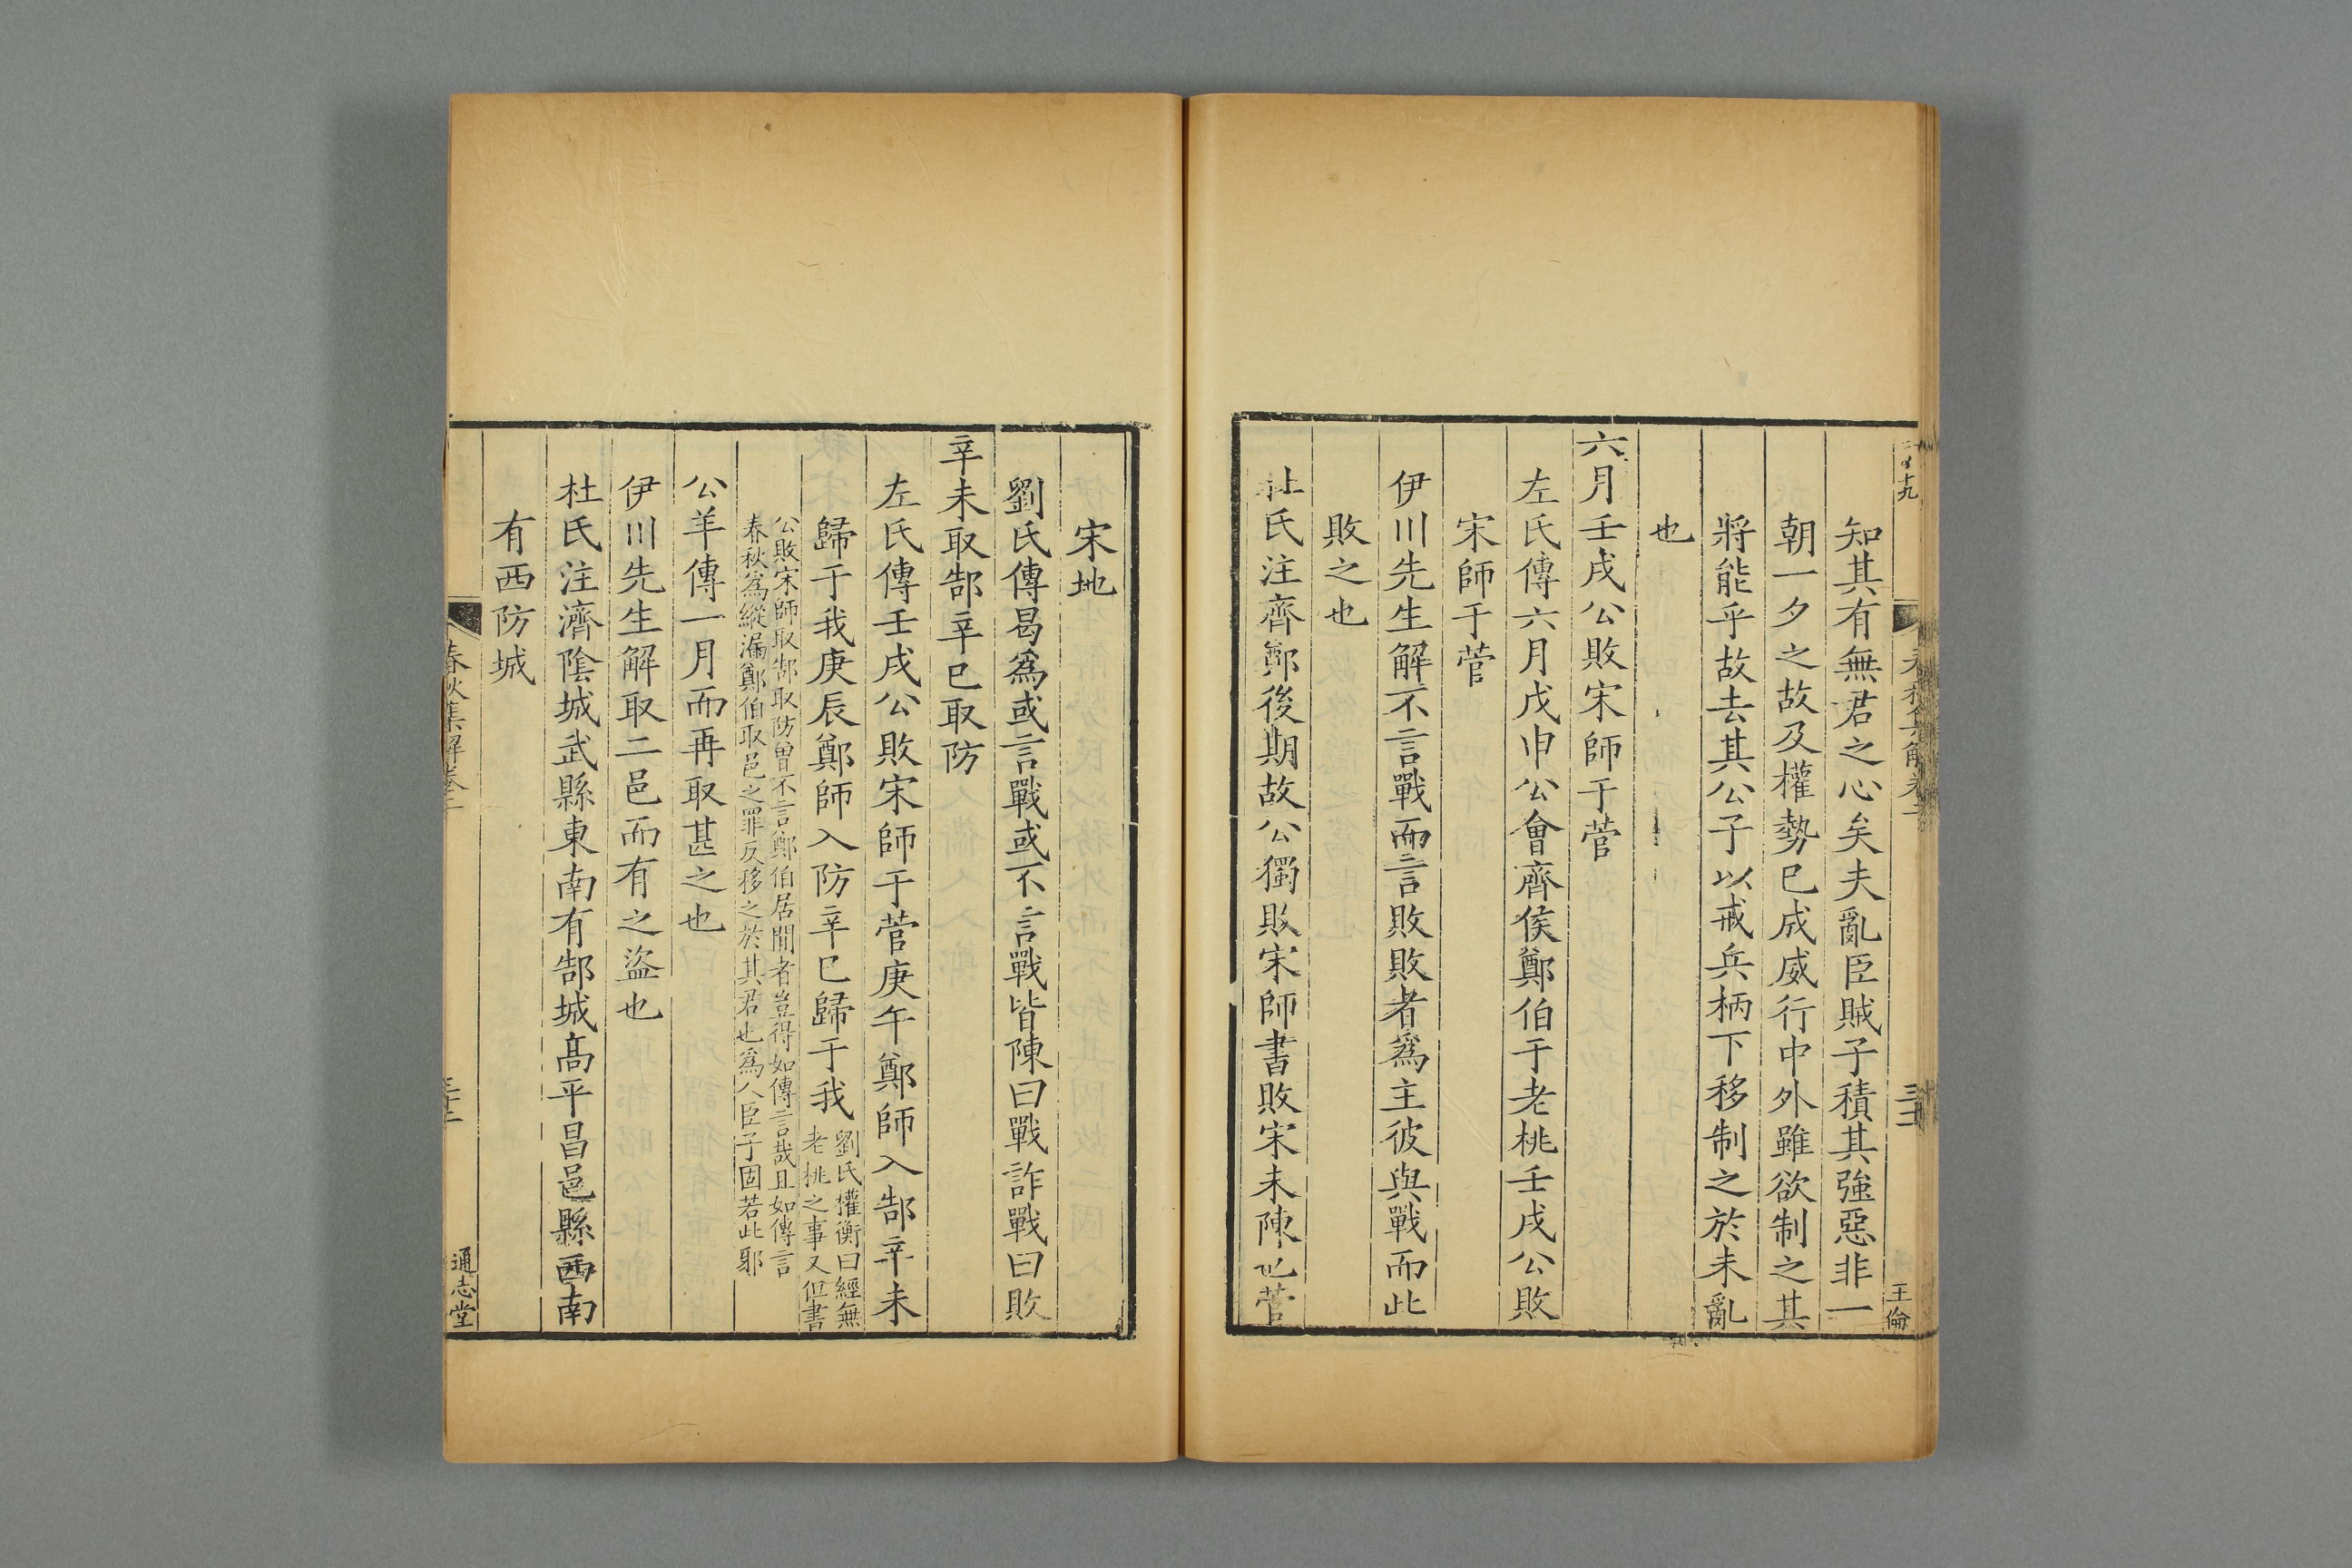 王倫
知其有無君之心矣夫亂臣賊子積其強惡非一
朝一夕之故及權勢已成威行中外雖欲制之其
將能乎故去其公子以戒兵柄下移制之於未亂
也
六月壬戌公敗宋師于菅
左氏傳六月戊申公會齊侯鄭伯于老桃壬戌公敗
宋師于菅
伊川先生解不言戰而言敗敗者爲主彼與戰而此
敗之也
杜氏注齊鄭後期故公獨敗宋師書敗宋未陳也菅
宋地
劉氏傳曷爲或言戰或不言戰皆陳曰戰詐戰曰敗
辛未取郜辛巳取防
左氏傳壬戌公敗宋師于菅庚午鄭師入郜辛未
歸于我庚辰鄭師入防辛巳歸于我
劉氏權衡曰經無
老桃之事又但書
公敗宋師取郜取防曾不言鄭伯居間者豈得如傳言哉且如傳言
春秋爲縱漏鄭伯取邑之罪反移之於其君也爲人臣子固若此耶
公羊傳一月而再取甚之也
伊川先生解取二邑而有之盜也
杜氏注濟陰城武縣東南有郜城高平昌邑縣西南
有西防城
春秋集解卷二
三十二
通志堂